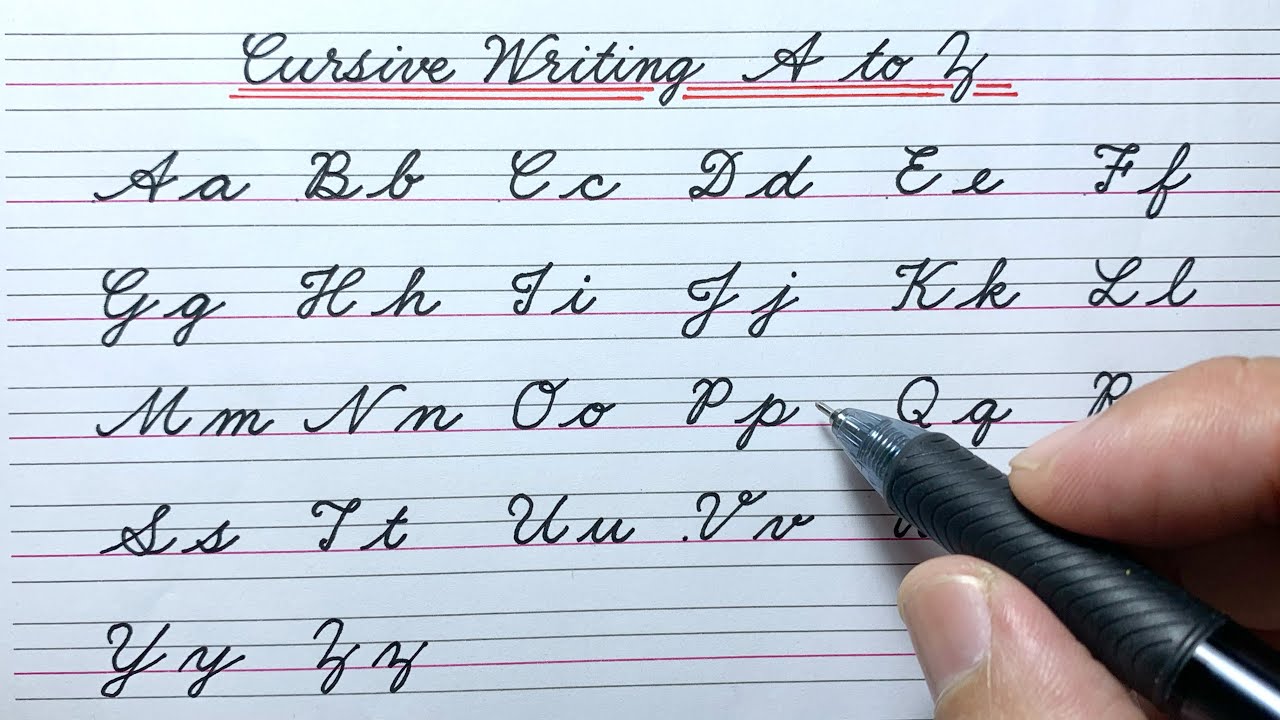 Cursive Writing A to Z
Aa Bb Cc Dd Ee Ff
Gg Hh Ii Jj Kk Ll
Mm Nn Oo Pp Qq R
Ss Tt Uu Vv
Yy Zz